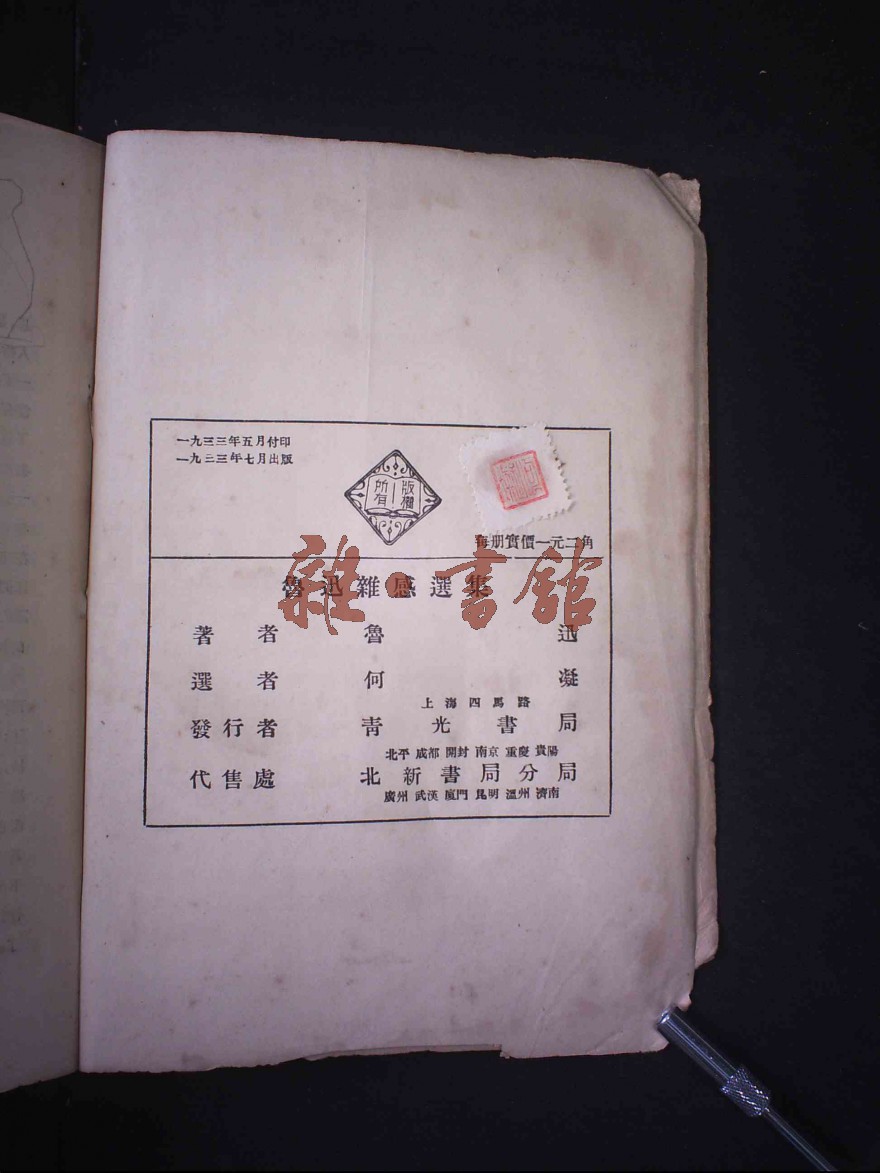 一九三三年五月付印
一九三三年七月出版
版權
所有
每册實價一元二角
魯迅雜感選集
雜·書館
著者 魯迅
選者 何凝
上海四馬路
發行者 靑光書局
北平 成都 開封 南京 重慶 貴陽
代售處 北新書局分局
廣州 武漢 廈門 昆明 溫州 濟南